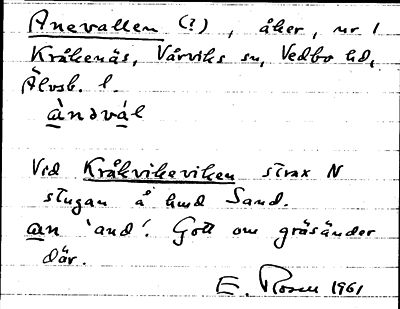 Anevallen (?), åker, nr 1
Kråkenäs, Vårviks sn, Vedbo hd,
Älvsb. l.
ànəvál
Vid Kråkvikeviken strax N
stugan å hmd Sand.
an 'and'. Gott om gräsänder
där.
E. Rosen 1961